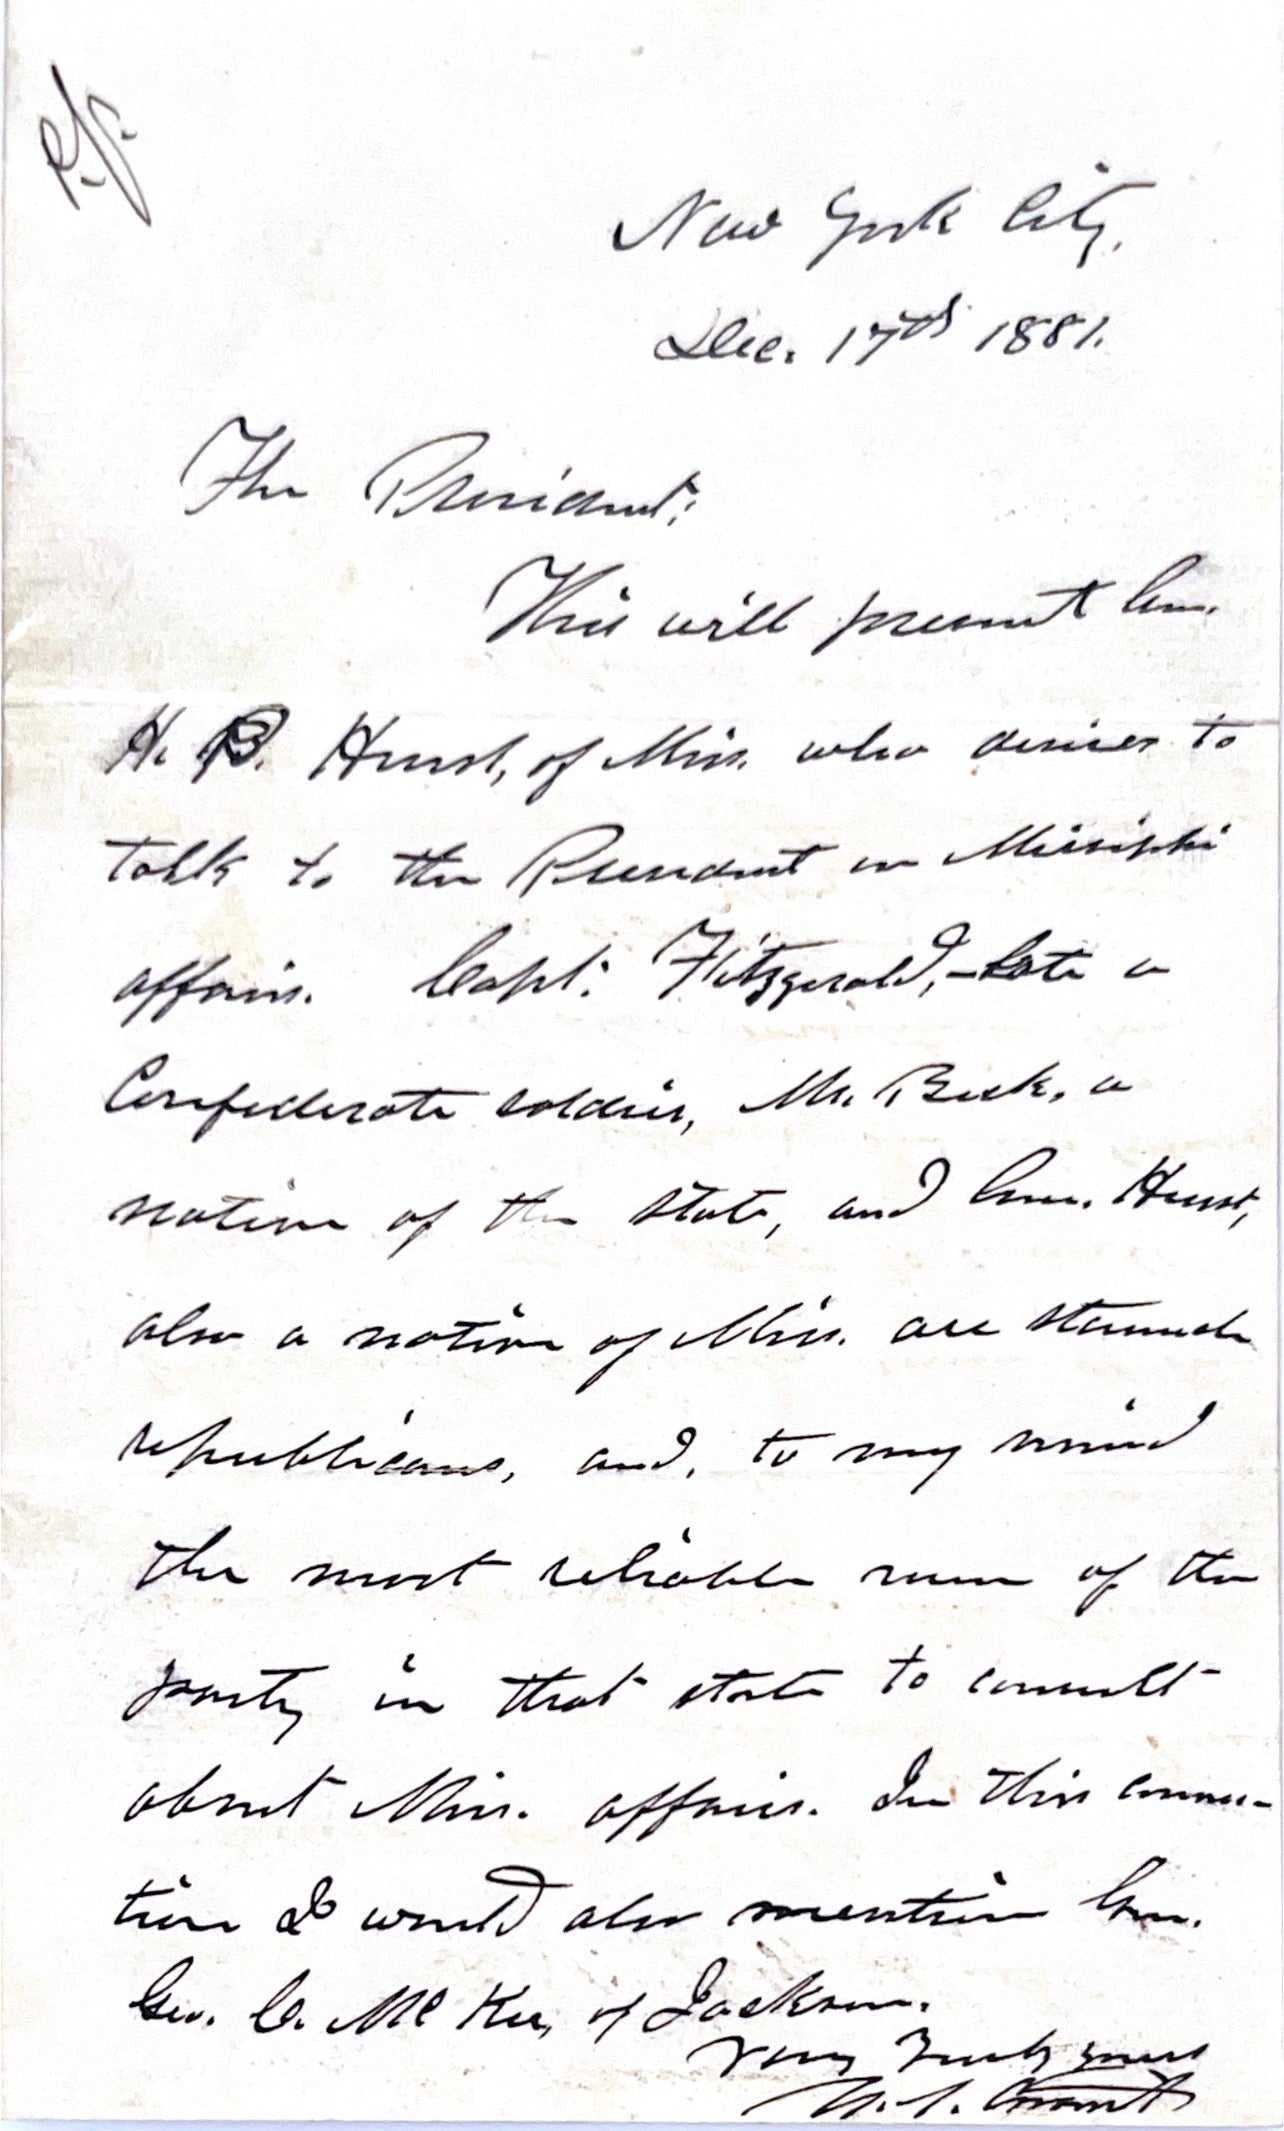 New York City,
Dec. 17th 1881.
The President:
This will present Gen.
H. B. Hurst, of Miss. who desires to
talk to the President on Missisippi
affairs. Capt. Fitzgerald, - late a
Confederate soldier, Mr. Beck, a
native of the state, and Gen. Hurst,
also a native of Miss. are staunch
republicans, and, to my mind
the most reliable men of the
party in that state to consult
about Miss. affairs. In this connec-
tion I would also mention Gen.
Geo. C. McKee, of Jackson.
Very Truly yours
U. S. Grant